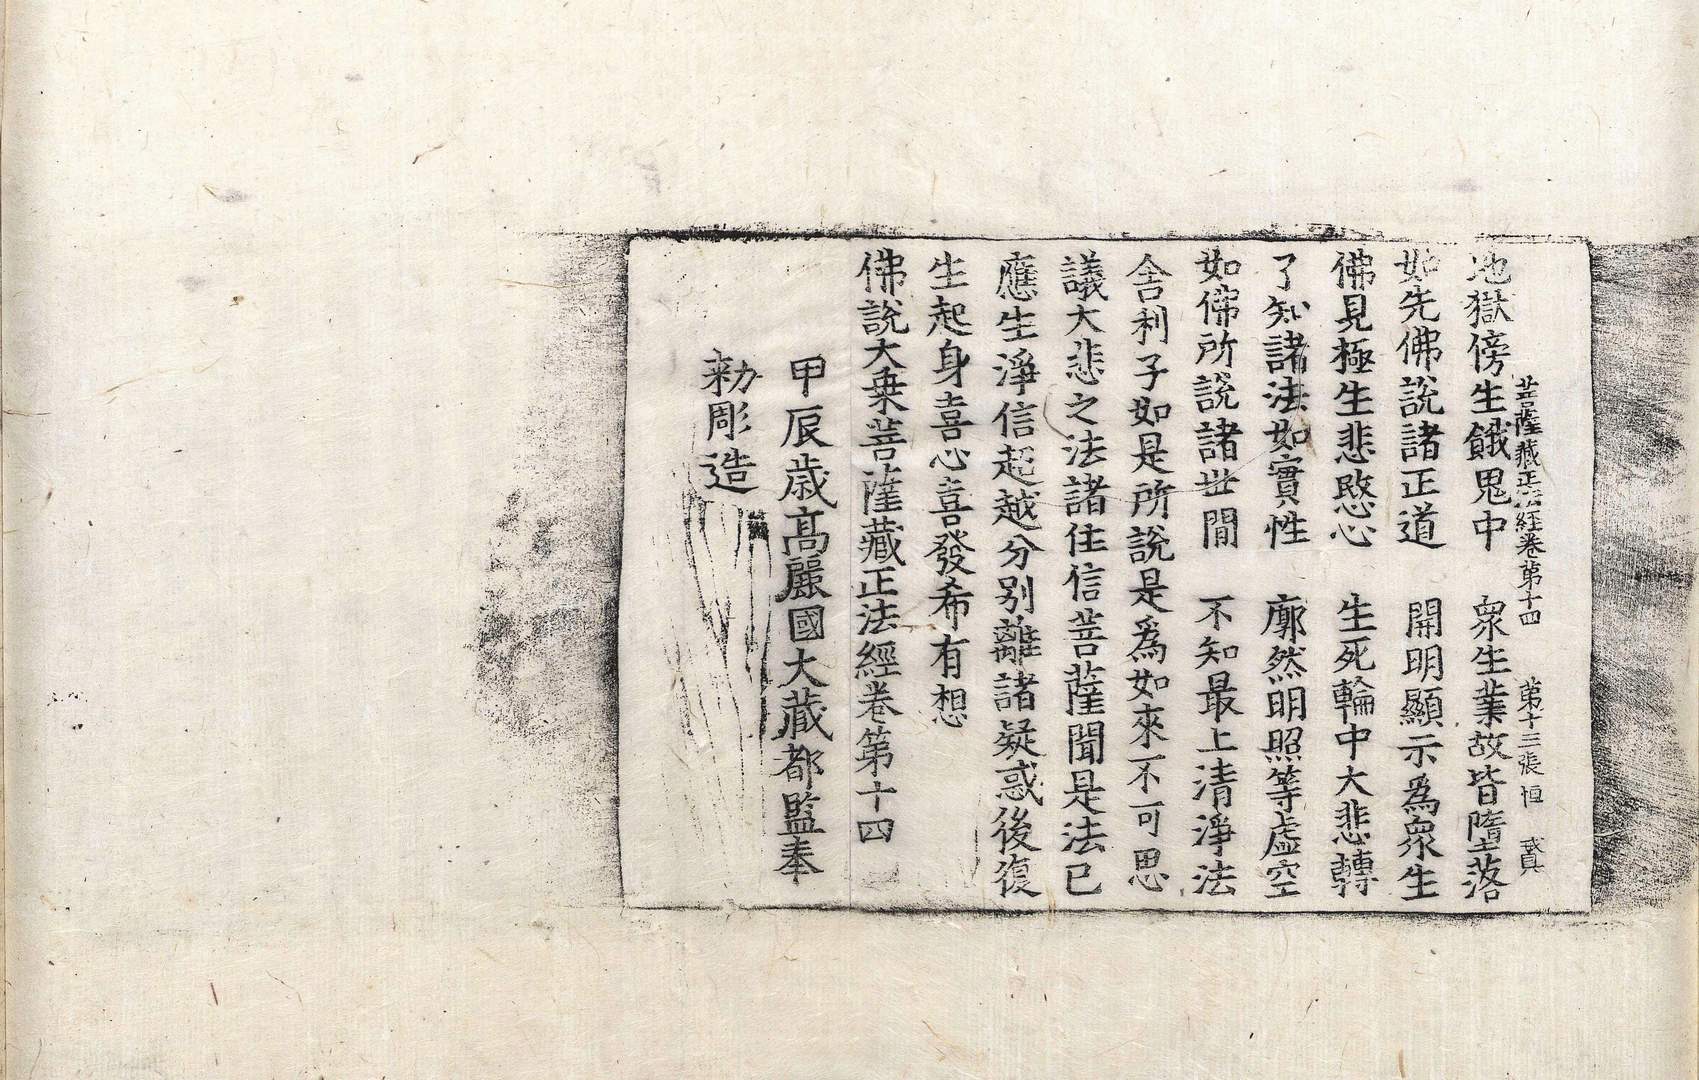 菩薩藏正法経卷第十四 第十三張 恒
地獄傍生餓鬼中 衆生業故皆墮落
如先佛說諸正道 開明顯示爲衆生
佛見極生悲愍心 生死輪中大悲轉
了知諸法如實性 廓然明照等虛空
如佛所說諸世間 不知最上清淨法
舎利子如是所說是爲如來不可思
議大悲之法諸住信菩薩聞是法已
應生淨信超越分別離諸疑惑後復
生起身喜心喜發希有想
佛說大乗菩薩藏正法經卷第十四
甲辰歳高麗國大藏都監奉
勑彫造